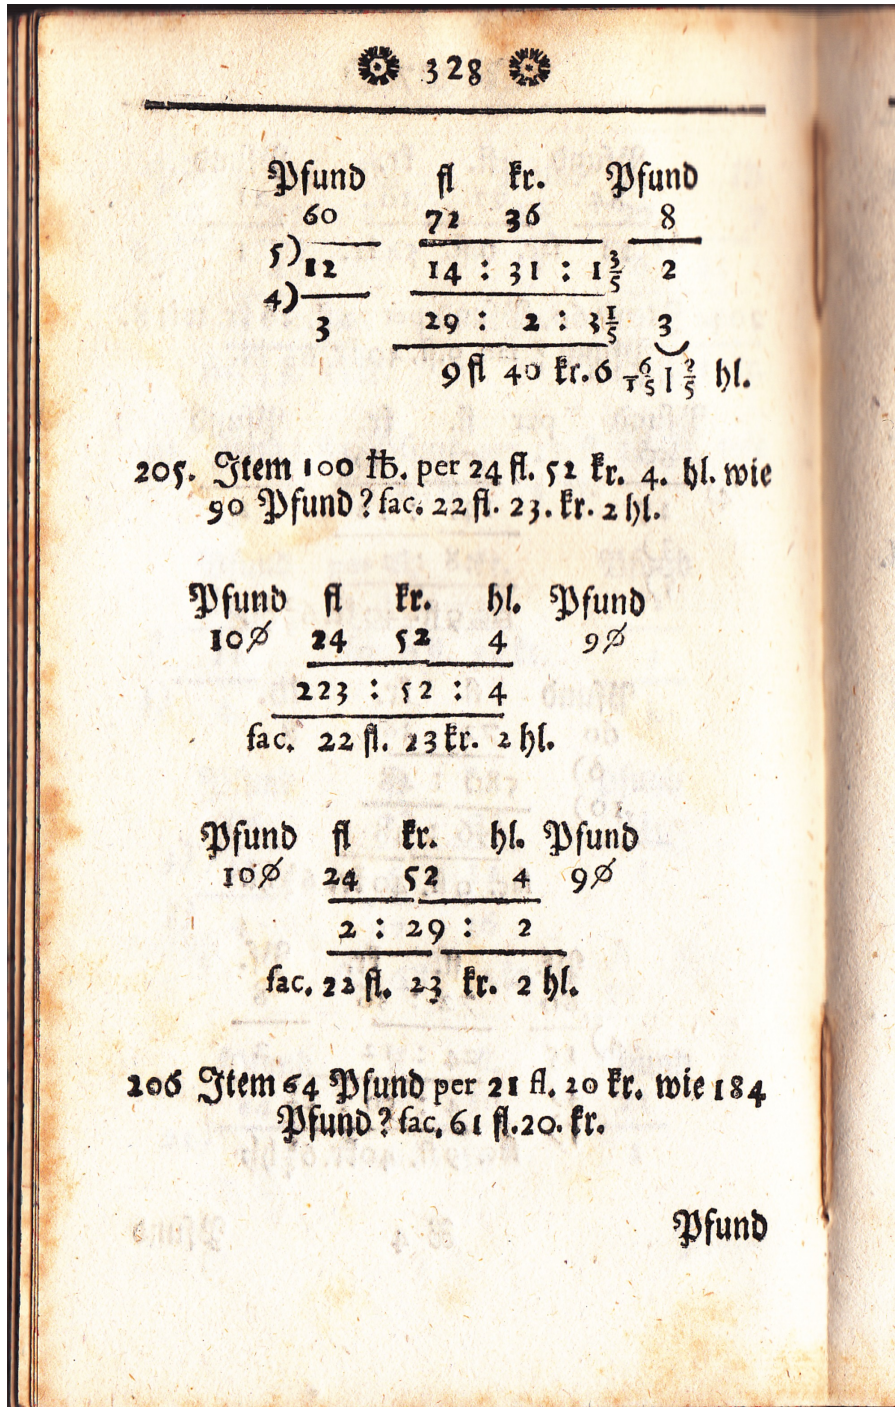 328
Pfund fl kr. Pfund
60 72 36 8
5) 12 14 : 31 : 1 3/5 2
4) 3 29 : 2 : 3 1/5 3
9 fl 40 kr. 6 6/15 | 2/5 hl.
205. Item 100 ℔. per 24 fl. 52 kr. 4. hl. wie
90 Pfund? fac. 22 fl. 23. kr. 2 hl.
Pfund fl kr. hl. Pfund
100 24 52 4 90
223 : 52 : 4
fac. 22 fl. 23 kr. 2 hl.
Pfund fl kr. hl. Pfund
100 24 52 4 90
2 : 29 : 2
fac. 22 fl. 23 kr. 2 hl.
206 Item 64 Pfund per 21 fl. 20 kr. wie 184
Pfund? fac. 61 fl. 20. kr.
Pfund